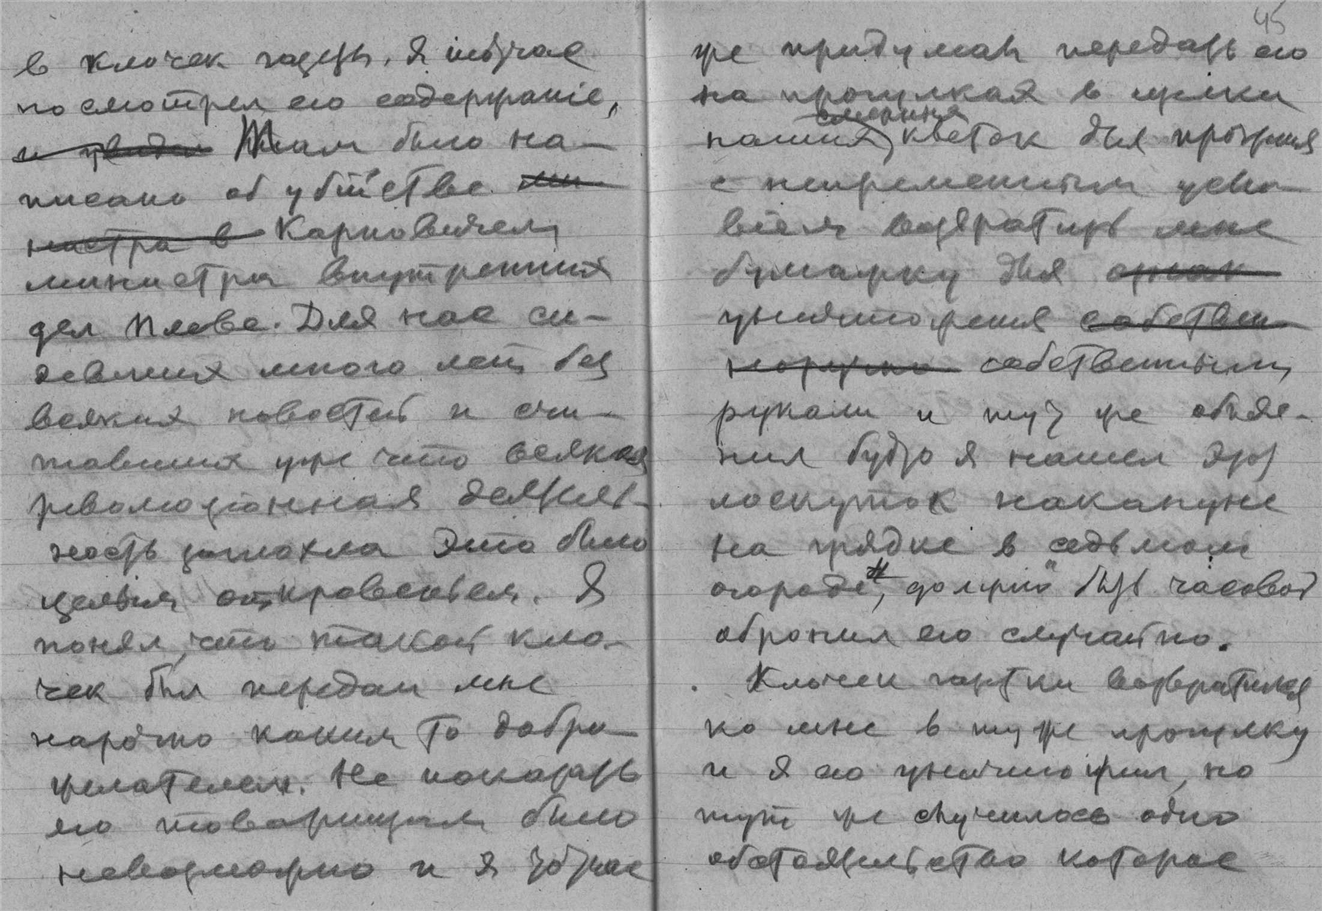 в клочек газеты. Я тотчас
посмотрел его содержанiе,
и увидел Там было на-
писано об убiйстве ми
нистра в Карповичем
министра внутренних
дел Плеве. Для нас си-
девших много лет без
всяких новостей и счи-
тавших уже что всякая
революцiонная деятель-
ность заглохла это было
целым откровеньем. Я
понял, что такой кло-
чек был передан мне
нарочно каким то добро-
желателем. Не показать
его товарищам было
невозможно и я тотчас
45
же придумал передать его
на прогулках в щелки
смежных
наших клеток для прочтения
с непременным усло-
вiем возвратить мне
бумажку для
уничтоженiя собствен
норучно собственными
руками и тут же объяс-
нил будто я нашел этот
лоскуток накануне
на грядке в седьмом
огороде, должно быть часовой
обронил его случайно.
Клочек газетки возвратился
ко мне в ту же прогулку
и я его уничтожил, но
тут же случилось одно
обстоятельство которое